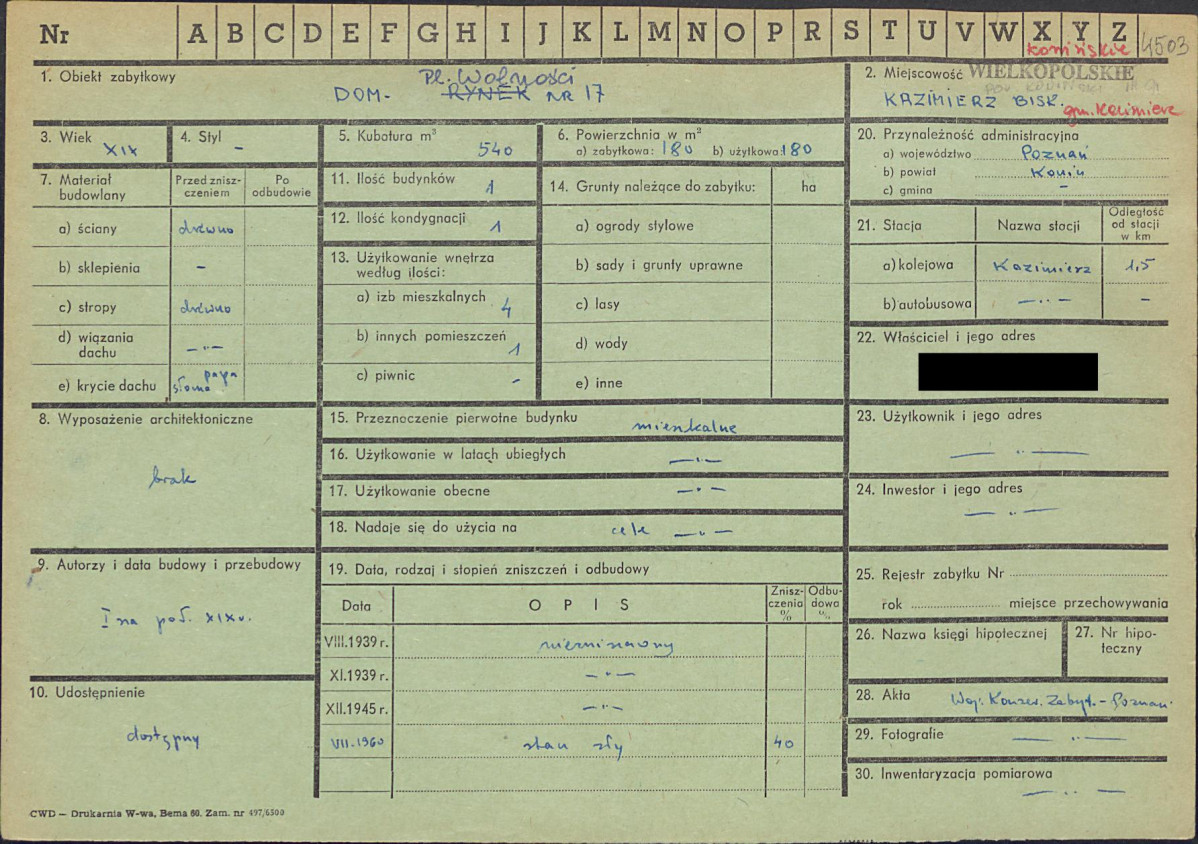 Nr A B C D E F G H I J K L M N O P R S T U V W X Y Z
konińskie 4503
1. Obiekt zabytkowy
Pl. Wolności
DOM - RYNEK NR 17
2. Miejscowość WIELKOPOLSKIE
KAZIMIERZ BISK.
gm. Kazimierz
3. Wiek XIX
4. Styl -
5. Kubatura m³ 540
6. Powierzchnia w m²
a) zabytkowa: 180 b) użytkowa: 180
7. Materiał budowlany
Przed zniszczeniem
Po odbudowie
a) ściany drewno
b) sklepienia -
c) stropy drewno
d) wiązania dachu -"-
e) krycie dachu papa
słoma
8. Wyposażenie architektoniczne
brak
9. Autorzy i data budowy i przebudowy
I-na poł. XIX w.
10. Udostępnienie
dostępny
11. Ilość budynków 1
12. Ilość kondygnacji 1
13. Użytkowanie wnętrza
według ilości:
a) izb mieszkalnych 4
b) innych pomieszczeń 1
c) piwnic -
14. Grunty należące do zabytku: ha
a) ogrody stylowe
b) sady i grunty uprawne
c) lasy
d) wody
e) inne
15. Przeznoczenie pierwotne budynku mieszkalne
16. Użytkowanie w latach ubiegłych -"-
17. Użytkowanie obecne -"-
18. Nadaje się do użycia na cele -"-
19. Data, rodzaj i stopień zniszczeń i odbudowy
Data OPIS Zniszczenia % Odbudowa %
VIII.1939 r. niezniszczony
XI.1939 r. -"-
XII.1945 r. -"-
VII.1960 stan zły 40
20. Przynależność administracyjna
a) województwo Poznań
b) powiat Konin
c) gmina -
21. Stacja Nazwa stacji Odległość od stacji w km
a) kolejowa Kazimierz 1,5
b) autobusowa -"- -
22. Właściciel i jego adres
23. Użytkownik i jego adres
-"-
24. Inwestor i jego adres
-"-
25. Rejestr zabytku Nr
rok miejsce przechowywania
26. Nazwa księgi hipotecznej
27. Nr hipoteczny
28. Akta Woj. Konserw. Zabyt. - Poznań.
29. Fotografie -"-
30. Inwentaryzacja pomiarowa
-"-
CWD — Drukarnia W-wa, Bema 60. Zam. nr 497/6500